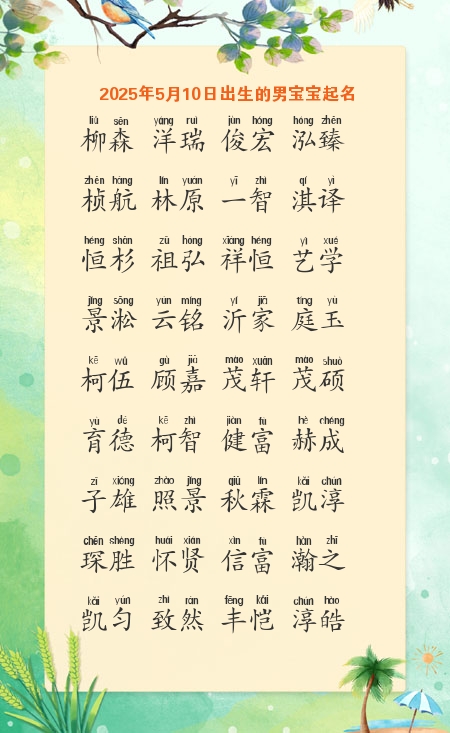 2025年5月10日出生的男宝宝起名
liǔ sēn yáng ruì jùn hóng hóng zhēn
柳森 洋瑞 俊宏 泓臻
zhēn háng lín yuán yī zhì qí yì
桢航 林原 一智 淇译
héng shān zǔ hóng xiáng héng yì xué
恒杉 祖弘 祥恒 艺学
jǐng sōng yún míng yí jiā tíng yù
景淞 云铭 沂家 庭玉
kē wǔ gù jiā mào xuān mào shuò
柯伍 顾嘉 茂轩 茂硕
yù dé kē zhì jiàn fù hè chéng
育德 柯智 健富 赫成
zǐ xióng zhào jǐng qiū lín kǎi chún
子雄 照景 秋霖 凯淳
chēn shèng huái xián xìn fù hàn zhī
琛胜 怀贤 信富 瀚之
kǎi yún zhì rán fēng kǎi chún hào
凯匀 致然 丰恺 淳皓